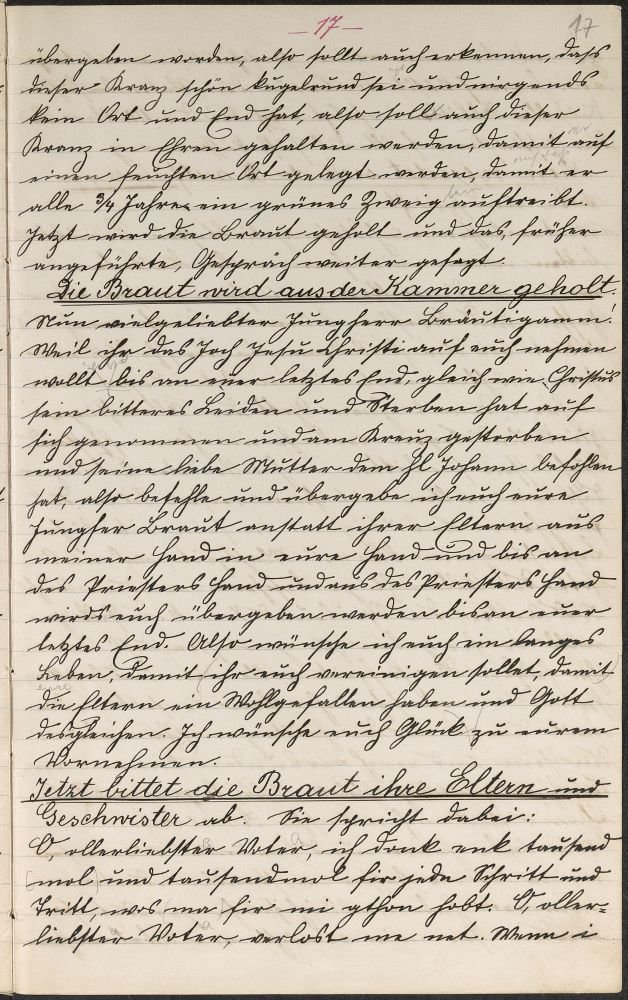 – 17 –
17
übergeben worden, also sollt auch erkennen, dass
dieser Kranz schön kugelrund sei und nirgends
kein Ort und End hat, also soll auch dieser
Kranz in Ehren gehalten werden, damit auf
einen feuchten Ort gelegt werden, damit er
alle 3/4 Jahre ein grünes Zweig auftreibt.
Jetzt wird die Braut geholt und das, früher
angeführte, Gespräch weiter gesagt.
Die Braut wird aus der Kammer geholt.
Nun vielgeliebter Jungherr Bräutigamm!
Weil ihr das Joch Jesu Christi auf euch nehmen
wollt bis an euer letztes End, gleich wie Christus
sein bitteres Leiden und Sterben hat auf
sich genommen und am Kreuz gestorben
und seine liebe Mutter dem hl Johann befohlen
hat, also befehle und übergebe ich euch eure
Jungfer Braut anstatt ihrer Eltern aus
meiner Hand in eure Hand und bis an
des Priesters Hand und aus des Priesters Hand
wirds euch übergeben werden bis an euer
letztes End. Also wünsche ich euch ein langes
Leben, damit ihr euch vereinigen sollet, damit
die Eltern ein Wohlgefallen haben und Gott
desgleichen. Ich wünsche euch Glück zu eurem
Vornehmen.
Jetzt bittet die Braut ihre Eltern und
Geschwister ab. Sie spricht dabei:
O, ollerliebster Voter, ich donk enk tausend
mol und tausendmol fir jeda Schritt und
Tritt, wos ma fir mi gthon hobt. O, oller=
liebster Voter, verlost me net. Wenn i